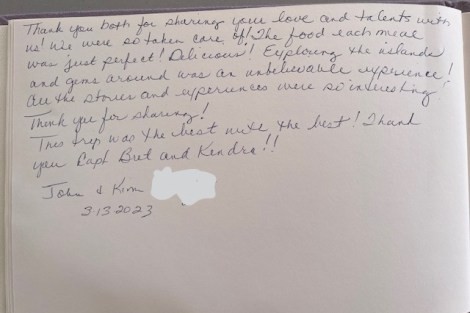 Thank you both for sharing your love and talents with
us! We were so taken care of! The food each meal
was just perfect! Delicious! Exploring the islands
and gems around was an unbelievable experience!
All the stories and experiences were so interesting
Thank you for sharing!
This trip was the best with the best! Thank
you Capt Bret and Kendra!!
John & Kim
3-13-2023